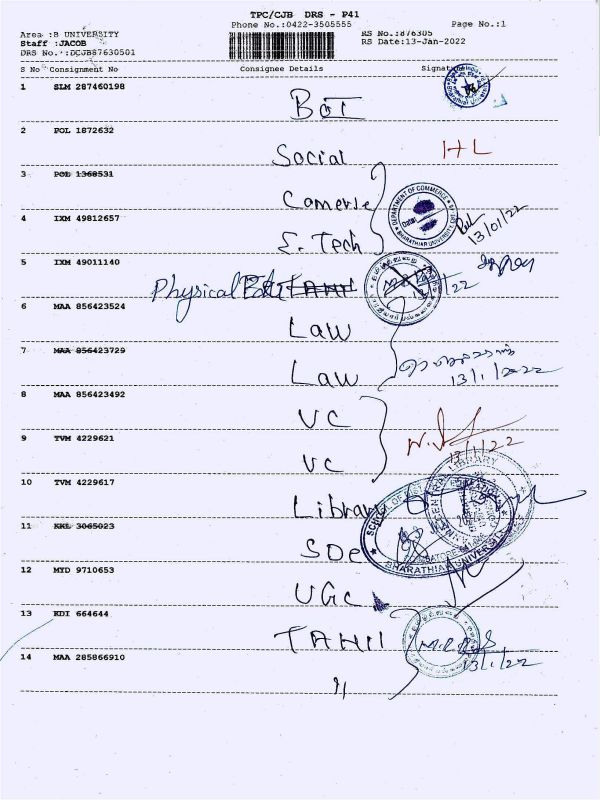 TPC/CJB DRS - P41
Phone No.:0422-3505555 Page No.:1
Area :B UNIVERSITY RS No.:876305
Staff :JACOB RS Date:13-Jan-2022
DRS No.:DCJB87630501
S No Consignment No Consignee Details Signatu
1 SLM 287460198
BOT
2 POL 1872632
Social HL
3 POD 1368531
Comerse
4 IXM 49812657
E. Tech
DEPARTMENT OF COMMERCE
BHARATHIAR UNIVERSITY
13/01/22
5 IXM 49011140
Physical Edu TAMIL
13/1/22
6 MAA 856423524
Law
7 MAA 856423729
Law
13/1/2022
8 MAA 856423492
VC
9 TVM 4229621
VC
13/1/22
10 TVM 4229617
Library
LIBRARY
SCHOOL OF
BHARATHIAR UNIVERSITY
11 KKL 3065023
SDE
12 MYD 9710653
UGC
13 KDI 664644
TAMIL
14 MAA 285866910
13/1/22
"